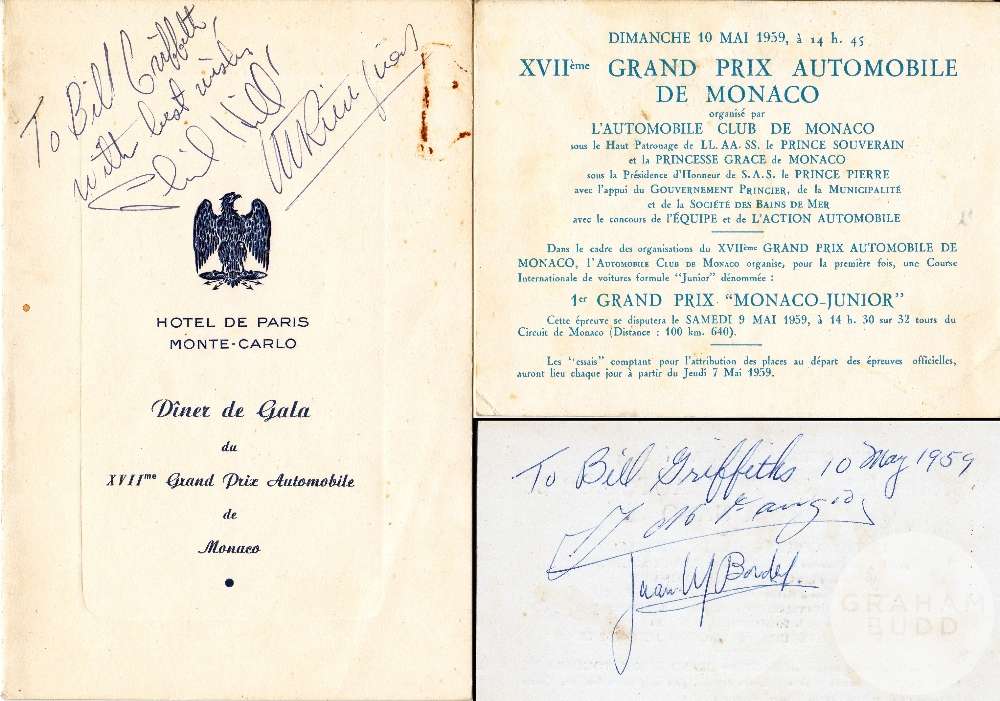 To Bill Griffith,
with best wishes
Phil Hill
HOTEL DE PARIS
MONTE-CARLO
Dîner de Gala
du
XVIIme Grand Prix Automobile
de
Monaco
DIMANCHE 10 MAI 1959, à 14 h. 45
XVIIème GRAND PRIX AUTOMOBILE
DE MONACO
organisé par
L'AUTOMOBILE CLUB DE MONACO
sous le Haut Patronage de LL. AA. SS. le PRINCE SOUVERAIN
et la PRINCESSE GRACE de MONACO
sous la Présidence d'Honneur de S.A.S. le PRINCE PIERRE
avec l'appui du GOUVERNEMENT PRINCIER, de la MUNICIPALITÉ
et de la SOCIÉTÉ DES BAINS DE MER
avec le concours de l'ÉQUIPE et de L'ACTION AUTOMOBILE
Dans le cadre des organisations du XVIIème GRAND PRIX AUTOMOBILE DE
MONACO, l'AUTOMOBILE CLUB DE MONACO organise, pour la première fois, une Course
Internationale de voitures formule "Junior" dénommée :
1er GRAND PRIX "MONACO-JUNIOR"
Cette épreuve se disputera le SAMEDI 9 MAI 1959, à 14 h. 30 sur 32 tours du
Circuit de Monaco (Distance : 100 km. 640).
Les "essais" comptant pour l'attribution des places au départ des épreuves officielles,
auront lieu chaque jour à partir du Jeudi 7 Mai 1959.
To Bill Griffiths 10 May 1959
Fangio
Juan M Bordeu
GRAHAM
BUDD